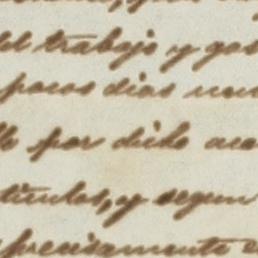 del trabajo y gas
pocos dias
por dicho
ticulos, y segun
precisamente